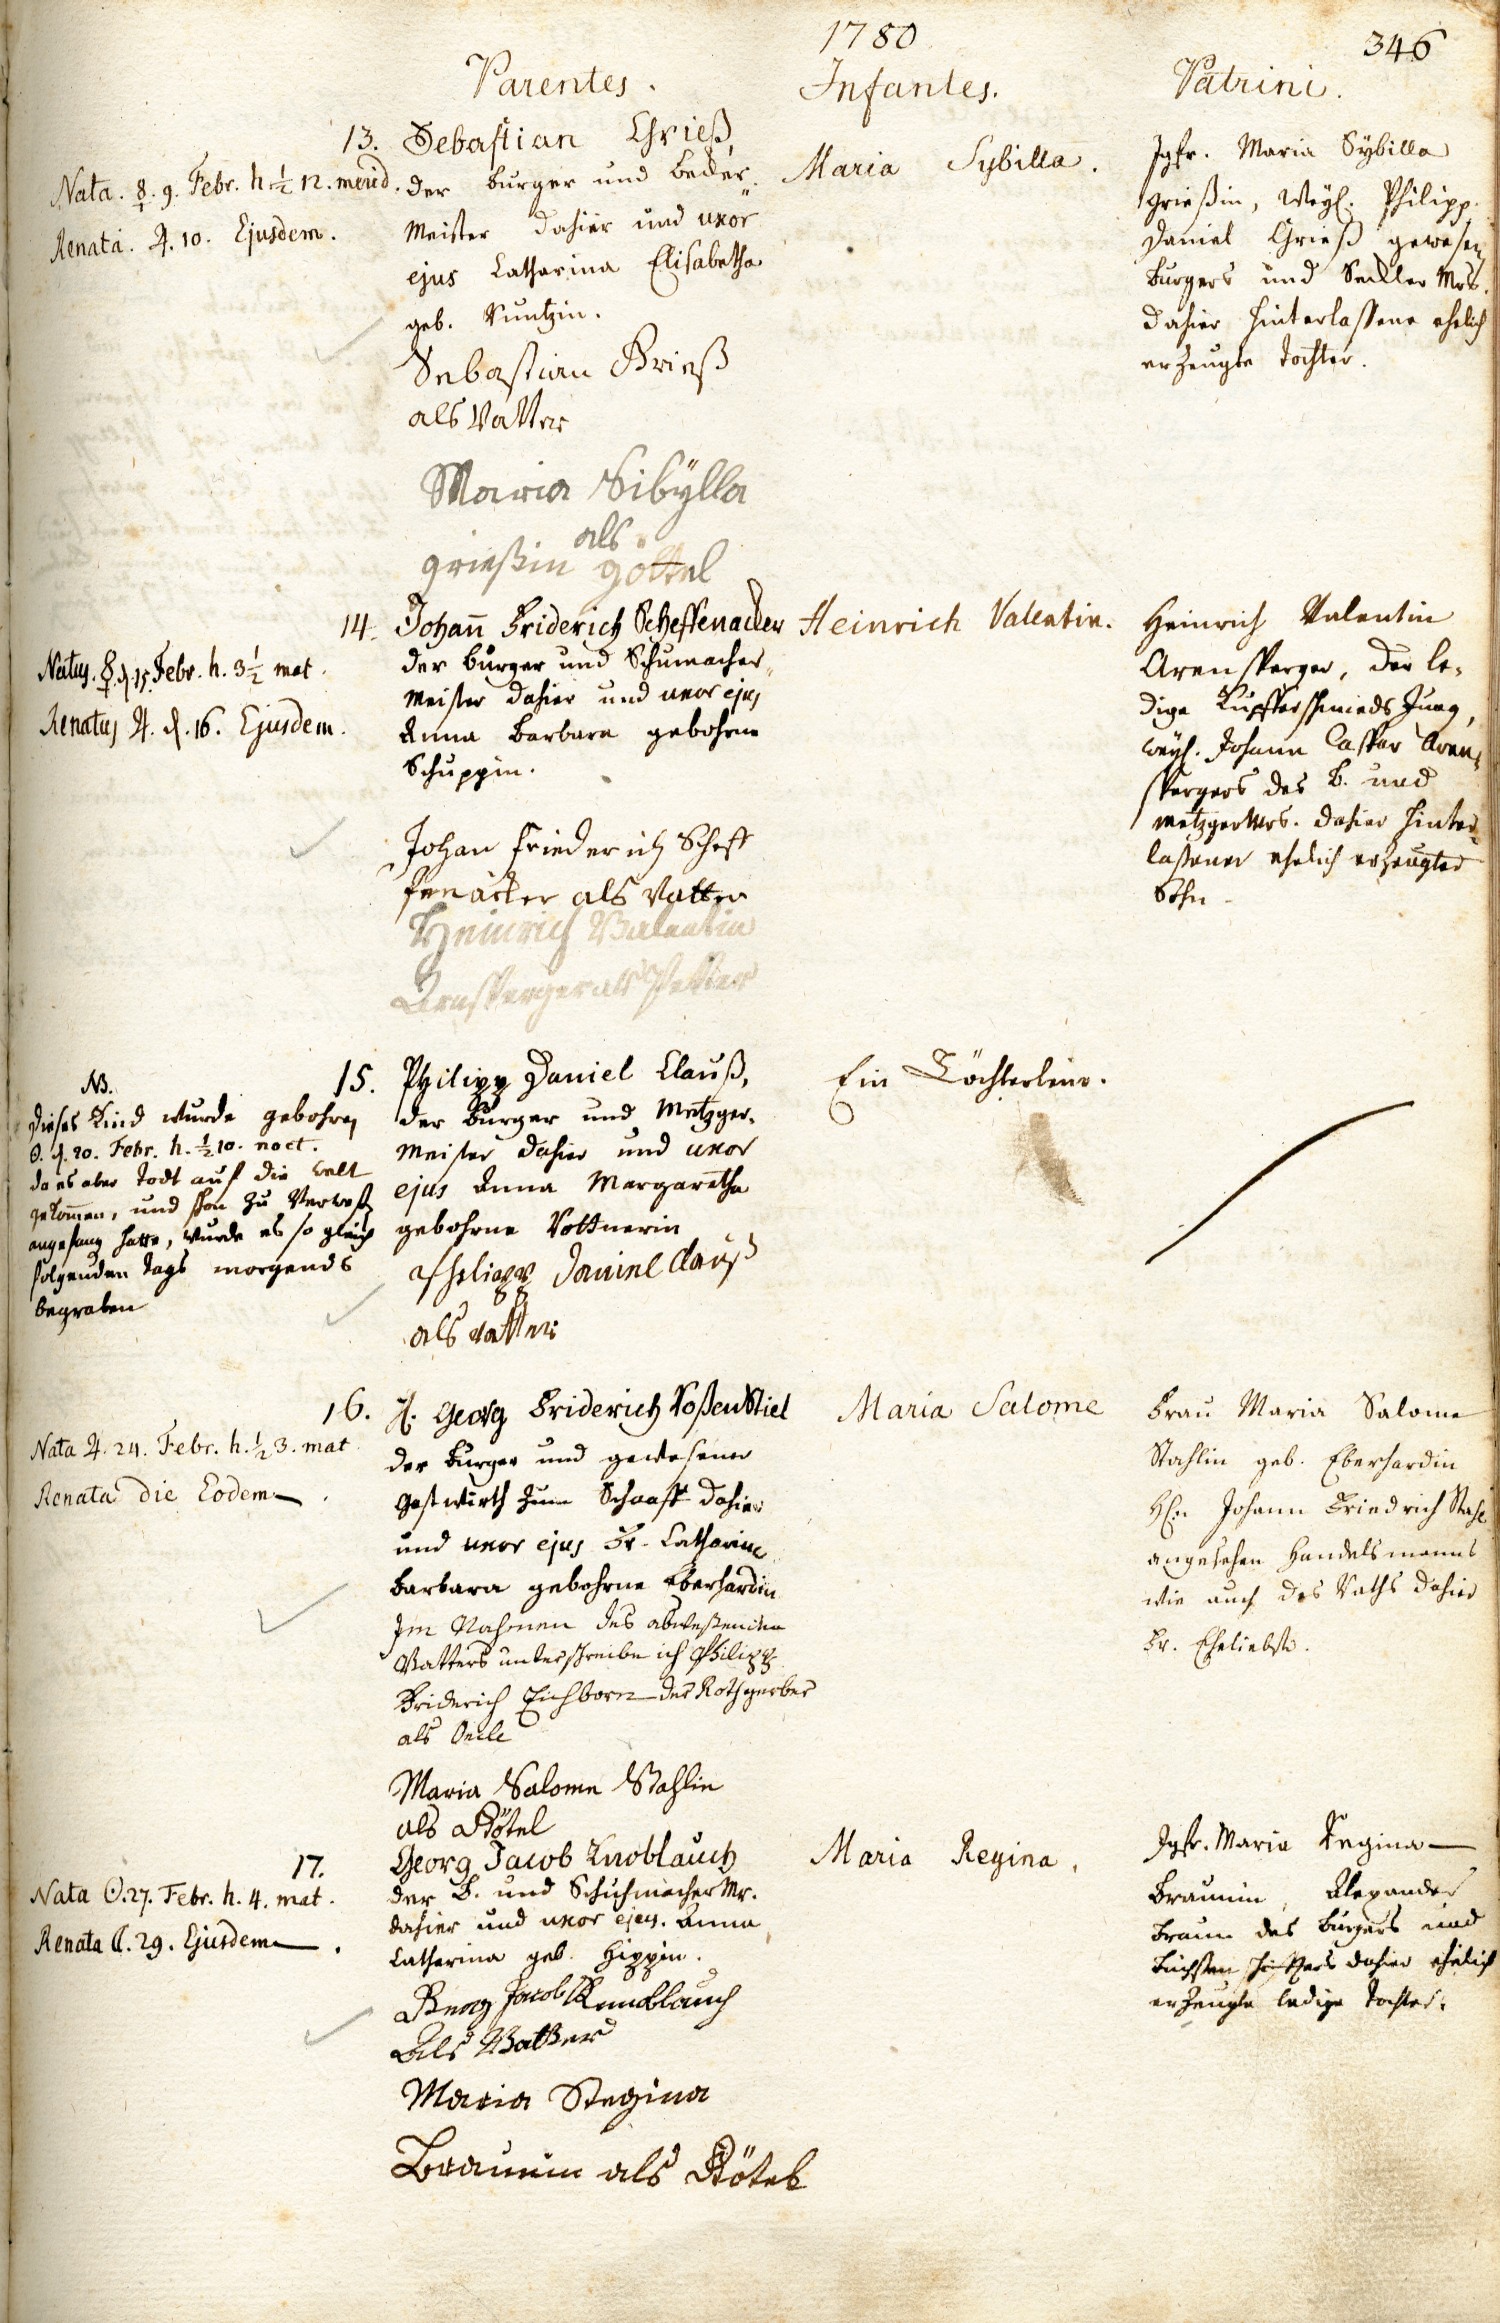 1780
346
Parentes.
Infantes.
Patrini.
13.
Nata. ☿. 9. Febr. h. ½ 12. merid.
Renata. ♃. 10. Ejusdem.
Sebastian Grieß,
der burger und Becker-
Meister dahier und uxor
ejus Catharina Elisabetha
geb. Kuntzin.
Sebastian Grieß
als Vatter
Maria Sibÿlla
als
grießin göttel
Maria Sybilla.
Jgfr. Maria Sÿbilla
Grießin, Weyl. Philipp
Daniel Grieß gewesen
burgers und Seckler Mrs.
dahier hinterlassene ehelich
erzeugte tochter.
14.
Natus. ☿. d. 15. Febr. h. 3½ mat.
Renatus ♃. d. 16. Ejusdem.
Johann Friderich Scheffenacker
der burger und Schumacher-
Meister dahier und uxor ejus
Anna Barbara gebohrne
Schuppin.
Johan Friederich Scheff
fenäcker als Vatter
Heinrich Valentin
Arnsperger als Petter
Heinrich Valentin.
Heinrich Valentin
Arensperger, der le-
dige Kupfferschmieds Jung,
weyl. Johann Caspar Aren-
spergers des B. und
metzger Mrs. dahier hinter-
lassener ehelich erzeugter
Sohn
15.
NB.
Dieses Kind wurde gebohren
☉. d. 20. Febr. h. ½ 10. noct.
da es aber todt auf die welt
gekommen, und schon zu Verweß
angefang hatte, wurde es so gleich
folgenden tags morgends
begraben
Philipp Daniel Clauß,
der burger und Metzger-
Meister dahier und uxor
ejus Anna Margaretha
gebohrne Vottnerin
Philipp Daniel Clauß
als vatter
Ein Töchterlein.
16.
Nata ♃. 24. Febr. h. ½ 3. mat
Renata die Eodem
H. Georg Friderich Roßenstiel
der burger und gewesener
Gastwürth zum Schaaff dahier
und uxor ejus Fr. Catharina
Barbara gebohrne Eberhardin
Im Nahmen des abweßenden
Vatters unterschreibe ich Philipp
Friderich Eichborn der Rothgerber
als Oncle
Maria Salome Stahlin
als Götel
Maria Salome
Frau Maria Salome
Stahlin geb. Eberhardin
Hn. Johann Friedrich Stahl
angesehen Handelsmanns
wie auch des Raths dahier
Fr. Eheliebste.
17.
Nata ☉. 27. Febr. h. 4. mat.
Renata ☾. 29. Ejusdem.
Georg Jacob Knoblauch
der B. und Schuhmacher Mr.
dahier und uxor ejus. Anna
Catharina geb. Hippin.
Georg Jacob Knoblauch
Als Vatter
Maria Regina
Braunin als Götel
Maria Regina.
Jgfr. Maria Regina
Braunin, Alexander
Braun des burgers und
büchsen schifters dahier ehelich
erzeugte ledige tochter.